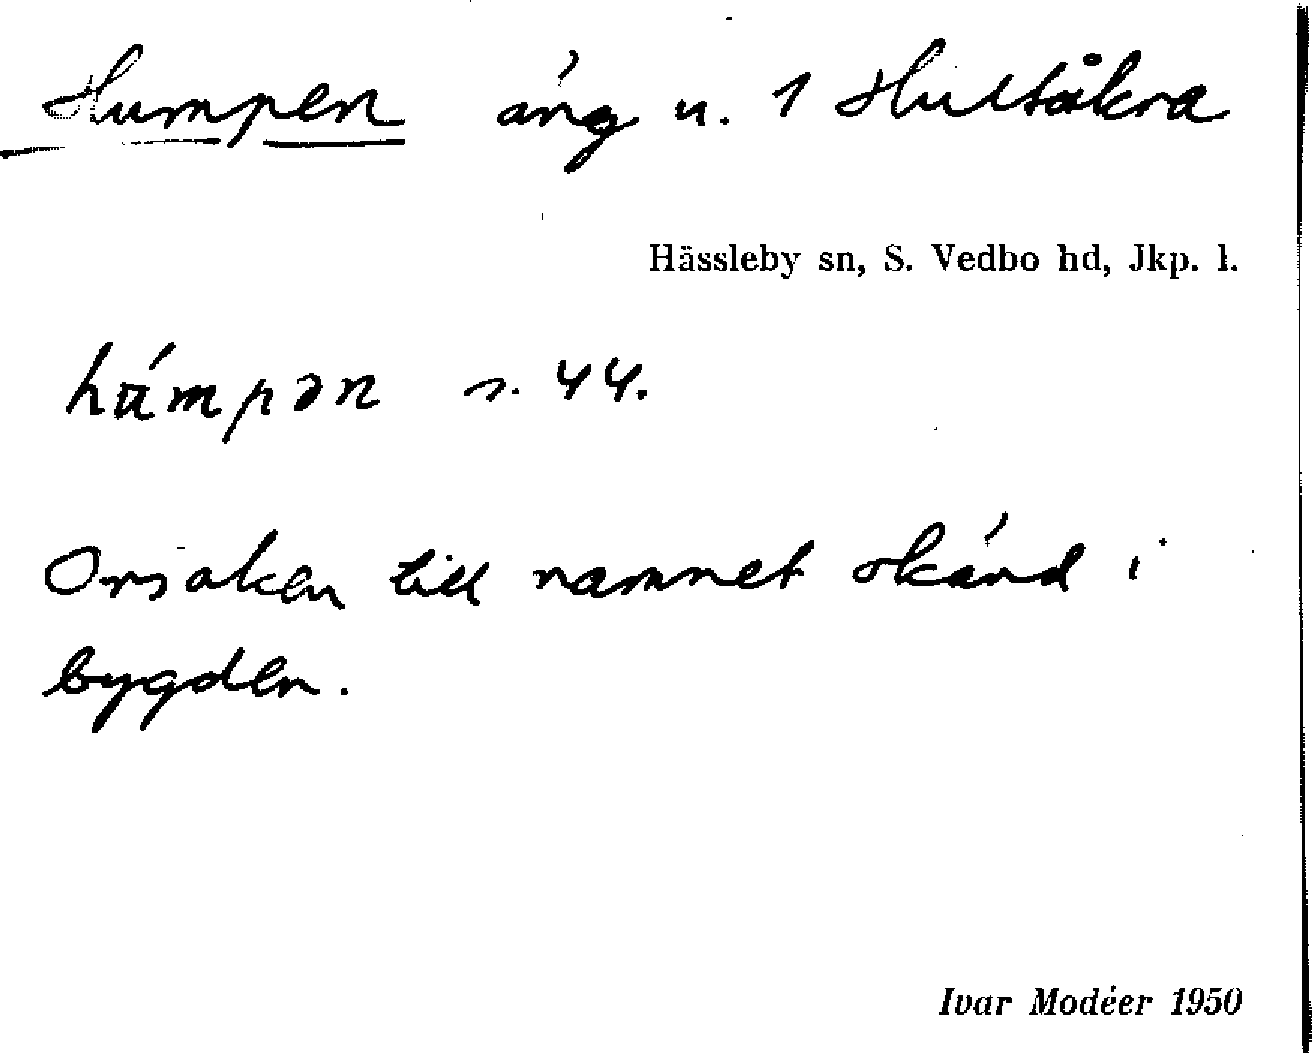 Humpen äng u. 1 Hultåkra
Hässleby sn, S. Vedbo hd, Jkp. l.
húmpən s. 44.
Orsaken till namnet okänd i
bygden.
Ivar Modéer 1950